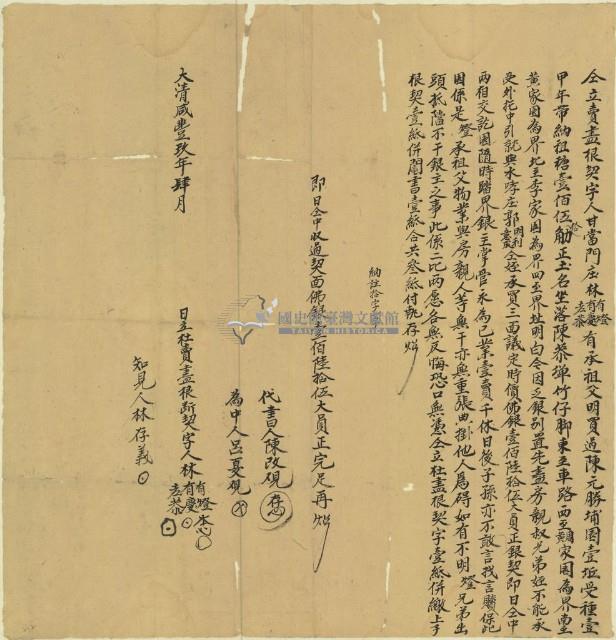 仝立賣盡根契字人甘當門庄林有燈有慶老恭有承祖父明買過陳元勝埔園壹坵受種壹
甲年帶納租糖壹佰伍拾觔正土名坐落陳恭埤竹仔脚東至車路西至顏家園為界南至
黃家園為界北至李家園為界四至界址明白今因乏銀別置先盡房親叔兄弟姪不能承
受外托中引就與水漆庄郭明利仝姪承買三面議定時價佛銀壹佰陸拾伍大員正銀契即日仝中
兩相交訖園隨時踏界銀主掌管永為己業壹賣千休日後子孫亦不敢言找言贖保此
園係是燈承祖父物業與房親人等無干亦無重張典掛他人為碍如有不明燈兄弟出
頭抵擋不干銀主之事此係二比两愿各無反悔恐口無憑仝立杜盡根契字壹紙併繳上手
根契壹紙併鬮書壹紙合共叁紙付執存炤
納註拾字
即日仝中收過契面佛銀壹佰陸拾伍大員正完足再炤
代書人陳改硯
為中人呂夏硯
日立杜賣盡根斷契字人林有燈有慶老恭
知見人林存義
大清咸豐玖年肆月
國史館臺灣文獻館
TAIWAN HISTORICA